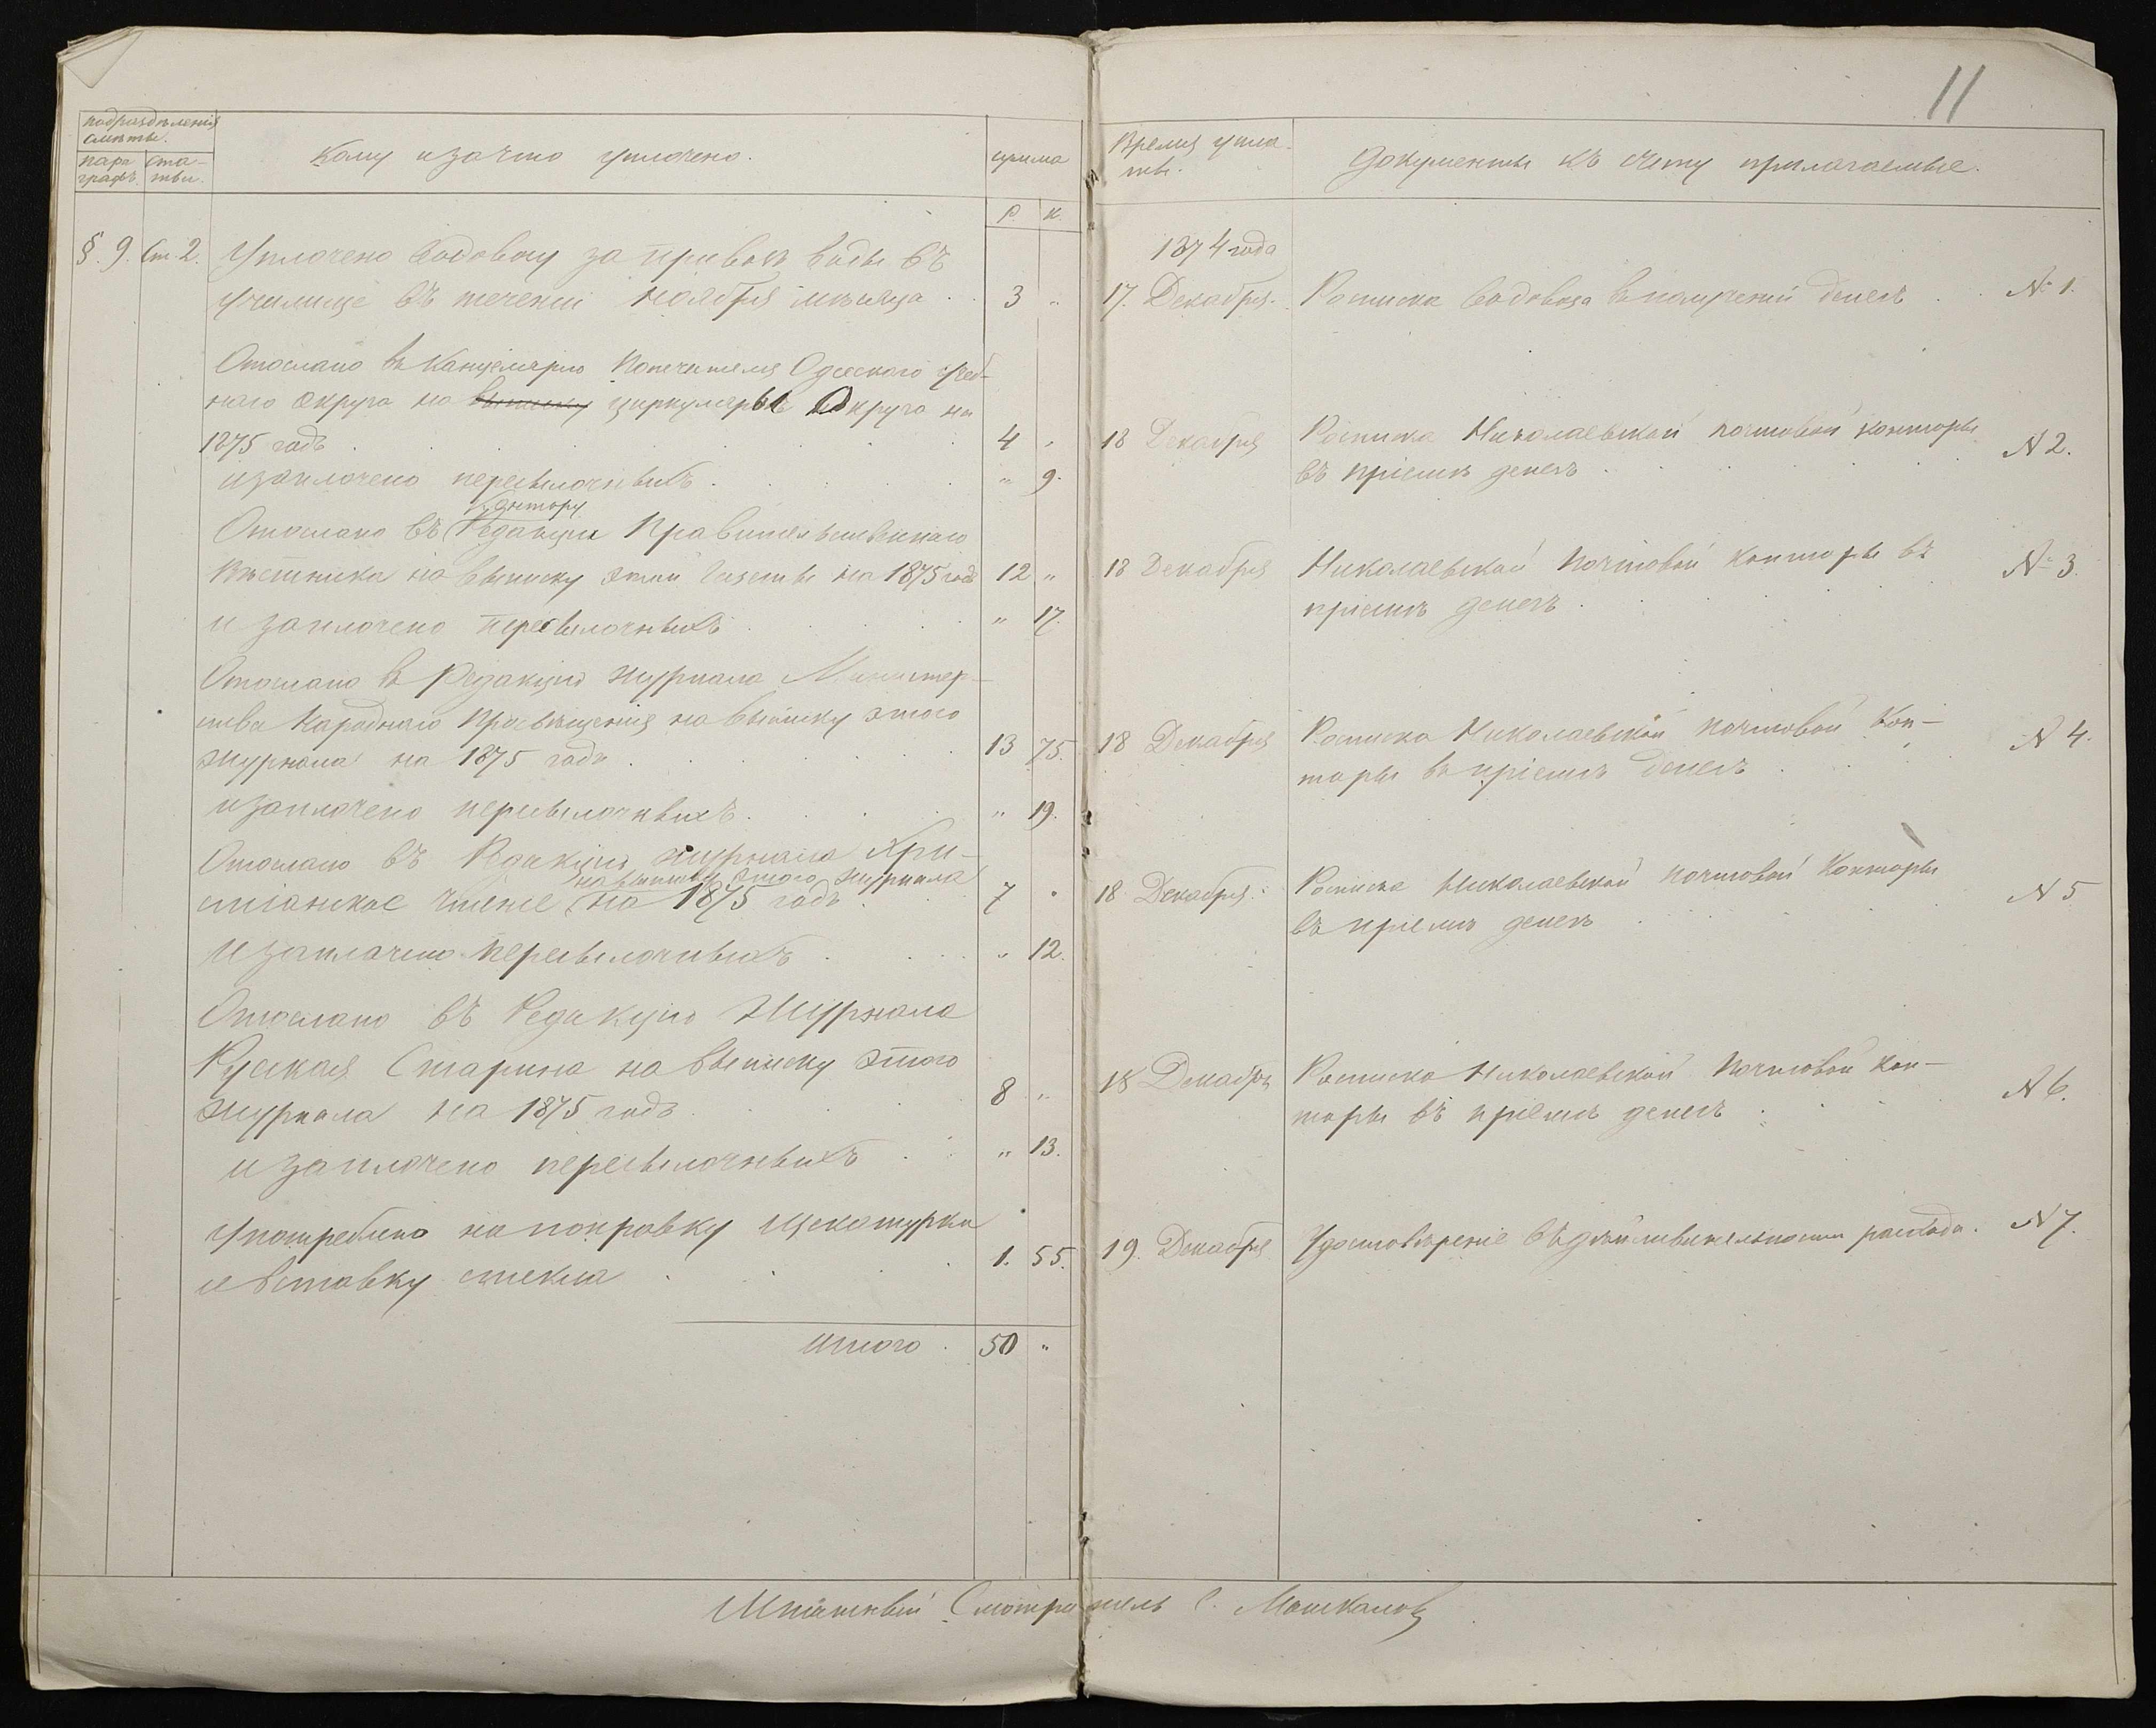 11
подраздѣленія
смѣты.
пара
графъ.
ста-
тьи.
Кому и за что уплочено.
сумма
Р. К.
§. 9. Ст. 2. Уплочено водовозу за привозъ воды въ
училище въ теченіи Ноября мѣсяца . . 3 „
Отослано въ Канцелярію Попечителя Одесскаго учеб-
наго Округа на выписку циркуляры Округа на
1875 годъ . 4 „
и заплочено пересылочныхъ . „ 9.
Контору
Отослано въ Редакціи Правительственнаго
Вѣстника на выписку этой Газеты на 1875 годъ 12 „
и заплочено пересылочныхъ . „ 17.
Отослано въ Редакцію журнала Министер-
ства Народнаго Просвѣщенія на выписку этого
журнала на 1875 годъ . 13 75.
и заплочено пересылочныхъ. „ 19.
Отослано въ Редакцію журнала Хри-
на выписку этого журнала
стіанское Чтеніе на 1875 годъ . 7 „
и заплочено пересылочныхъ . „ 12.
Отослано въ Редакцію Журнала
Русская Старина на выписку этого
журнала на 1875 годъ . 8 „
и заплочено пересылочныхъ . „ 13.
Употреблено на поправку щекатурки
и вставку стекла . 1. 55.
Итого . 50 „
Время упла-
ты.
Документы къ счету прилагаемые.
1874 года
17. Декабря. Росписка водовоза въ полученіи денегъ . . № 1.
18 Декабря Росписка Николаевской почтовой конторы
въ пріемѣ денегъ . № 2.
18 Декабря Николаевской Почтовой Конторы въ
пріемѣ денегъ . № 3.
18 Декабря Росписка Николаевской почтовой Кон-
торы въ пріемѣ денегъ . № 4.
18 Декабря. Росписка Николаевской почтовой Конторы
въ пріемѣ денегъ . № 5
18 Декабря Росписка Николаевской Почтовой Кон-
торы въ пріемѣ денегъ . № 6.
19. Декабря Удостовѣреніе въ дѣйствительности расхода. № 7.
Штатный Смотритель С. Машкаловъ